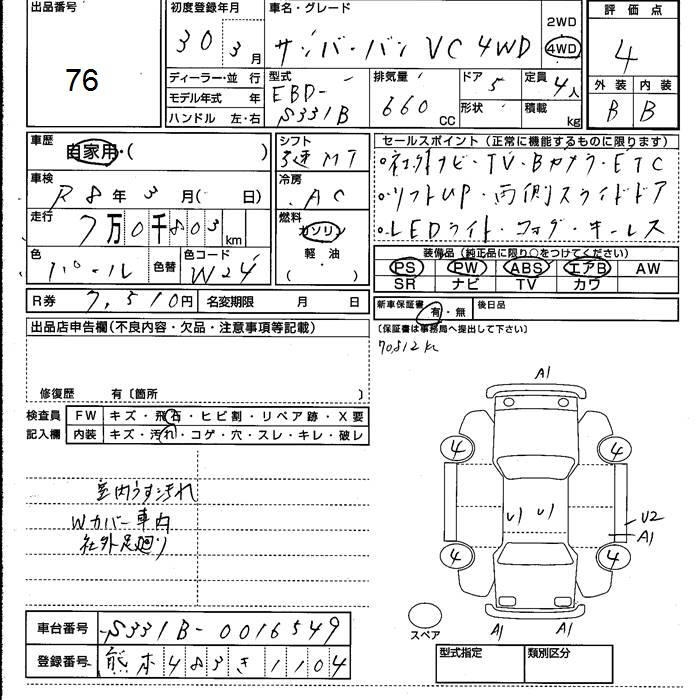 出品番号
76
初度登録年月
30 3月
車名・グレード
サンバーバン VC 4WD
2WD
4WD
評価点
4
外装 内装
B B
ディーラー・並行
モデル年式 年
ハンドル 左・右
型式
EBD-
S331B
排気量
660 CC
ドア
5
形状
定員
4人
積載
kg
車歴
自家用・( )
車検
R8年3月( 日)
走行
7万0千803km
色
パール
色替
色コード
W24
シフト
3速 MT
冷房
AC
燃料
ガソリン
軽・油
( )
セールスポイント(正常に機能するものに限ります)
○社外ナビ・TV・Bカメラ・ETC
○リフトUP・両側スライドドア
○LEDライト・フォグ・キーレス
装備品(純正品に限り○をつけてください)
PS PW ABS エアB AW
SR ナビ TV カワ
R券 7,510円 名変期限 月 日
新車保証書 有・無 後日品
(保証書は事務局へ提出して下さい)
70812k
出品店申告欄(不良内容・欠品・注意事項等記載)
修復歴 有〔箇所 〕
検査員
記入欄
FW キズ・飛石・ヒビ割・リペア跡・X要
内装 キズ・汚れ・コゲ・穴・スレ・キレ・破レ
室内うす汚れ
Wカバー車内
社外足廻り
A1
4 4
U1 U1
U2
A1
4 4
A1 A1
スペア
車台番号 S331B-0016549
登録番号 熊本483き1104
型式指定 類別区分